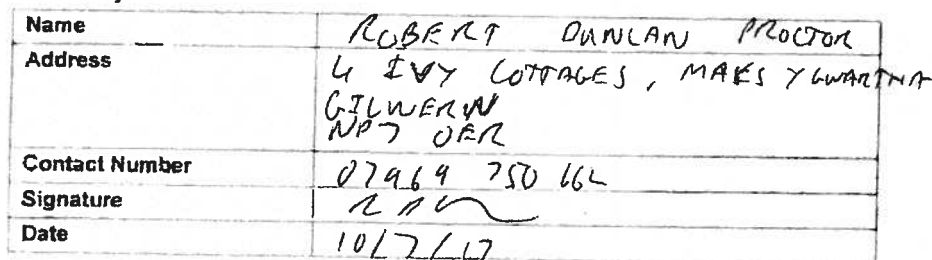 Name ROBERT DUNCAN PROCTOR
Address 4 IVY COTTAGES, MAES Y GWARTHA
GILWERN
NP7 0ER
Contact Number 07969 750
Signature
Date 10/7/17